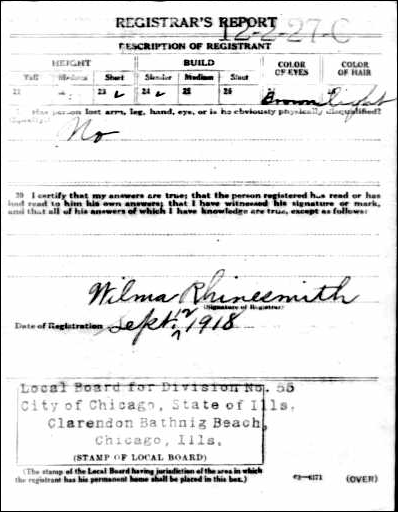 REGISTRAR'S REPORT
12-2-27-C
DESCRIPTION OF REGISTRANT
HEIGHT BUILD COLOR OF EYES COLOR OF HAIR
Tall Medium Short Slender Medium Stout
21 23 24 25 26
Brown light
person lost arm, leg, hand, eye, or is he obviously physically disqualified?
(Specify.)
No
29 I certify that my answers are true; that the person registered has read or has
had read to him his own answers; that I have witnessed his signature or mark,
and that all of his answers of which I have knowledge are true, except as follows:
Wilma Rhinesmith
(Signature of Registrar)
Date of Registration Sept. 12 1918
Local Board for Division No. 55
City of Chicago, State of Ills.
Clarendon Bathnig Beach,
Chicago, Ills.
(STAMP OF LOCAL BOARD)
(The stamp of the Local Board having jurisdiction of the area in which
the registrant has his permanent home shall be placed in this box.)
(OVER)